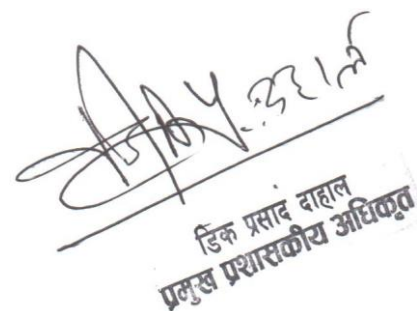 डिक प्रसाद दाहाल
प्रमुख प्रशासकीय अधिकृत